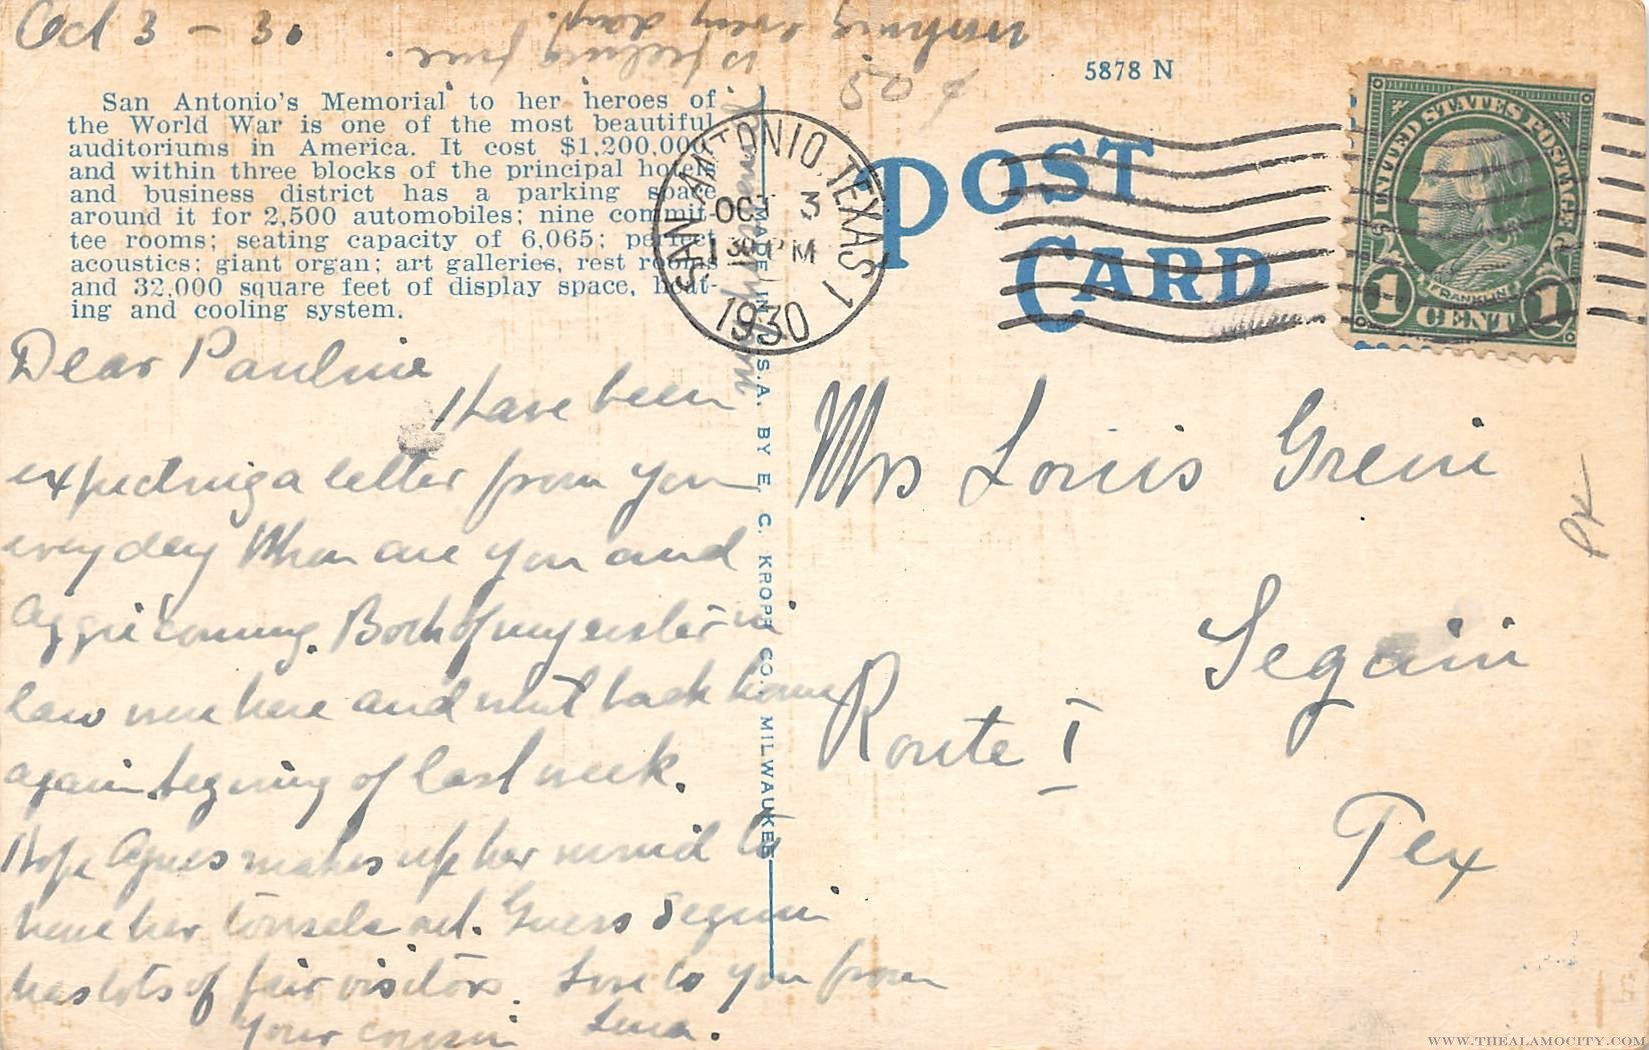 Oct 3 - 30
is feeling fine.
every day.
50 ¢
5878 N
San Antonio's Memorial to her heroes of
the World War is one of the most beautiful
auditoriums in America. It cost $1,200,000
and within three blocks of the principal hotels
and business district has a parking space
around it for 2,500 automobiles; nine commit-
tee rooms; seating capacity of 6,065; perfect
acoustics; giant organ; art galleries, rest rooms
and 32,000 square feet of display space, heat-
ing and cooling system.
SAN ANTONIO, TEXAS 1
OCT 3
1 30 PM
1930
POST
CARD
UNITED STATES POSTAGE
FRANKLIN
1 CENT 1
MADE IN U.S.A. BY E. C. KROPP CO. MILWAUKEE
Dear Pauline
Have been
expecting a letter from you
every day When are you and
Aggie coming. Both of my sister in
law were here and went back home
again begining of last week.
Hope Agnes makes up her mind to
have her tonsels out. Guess Seguin
has lots of fair visitors. Love to you from
your cousin
Mrs Louis
Seguin
Route 1
Tex
WWW.THEALAMOCITY.COM